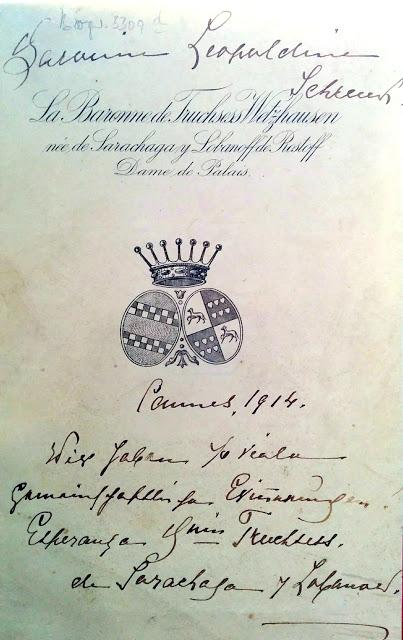 Biogr. 3309 d
Baronin Leopoldine
La Baronne de Truchsess Wetzhausen
née de Sarachaga y Lobanoff de Rostoff
Dame de Palais.
Cannes, 1914.
Wir haben so viele
gemeinschaftliche Erinnerungen!
Esperanza Truchsess.
de Sarachaga y Lobanoff.